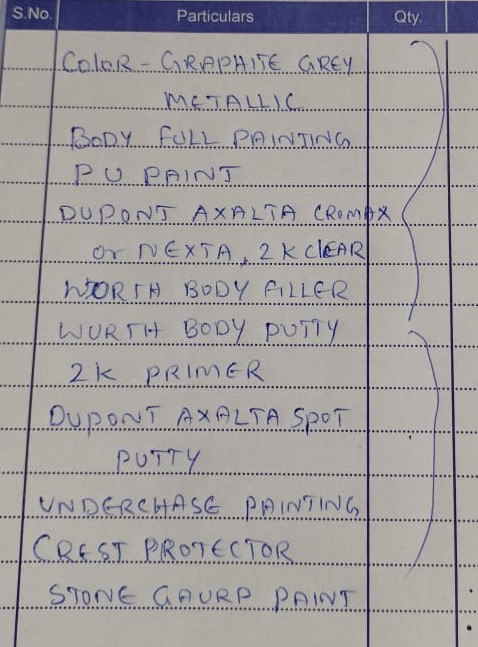 S.No. Particulars Qty.
COLOR - GRAPHITE GREY
METALLIC
BODY FULL PAINTING
PU PAINT
DUPONT AXALTA CROMAX
or NEXTA, 2K CLEAR
WORTH BODY FILLER
WURTH BODY PUTTY
2K PRIMER
DUPONT AXALTA SPOT
PUTTY
UNDERCHASE PAINTING
CREST PROTECTOR
STONE GAURD PAINT